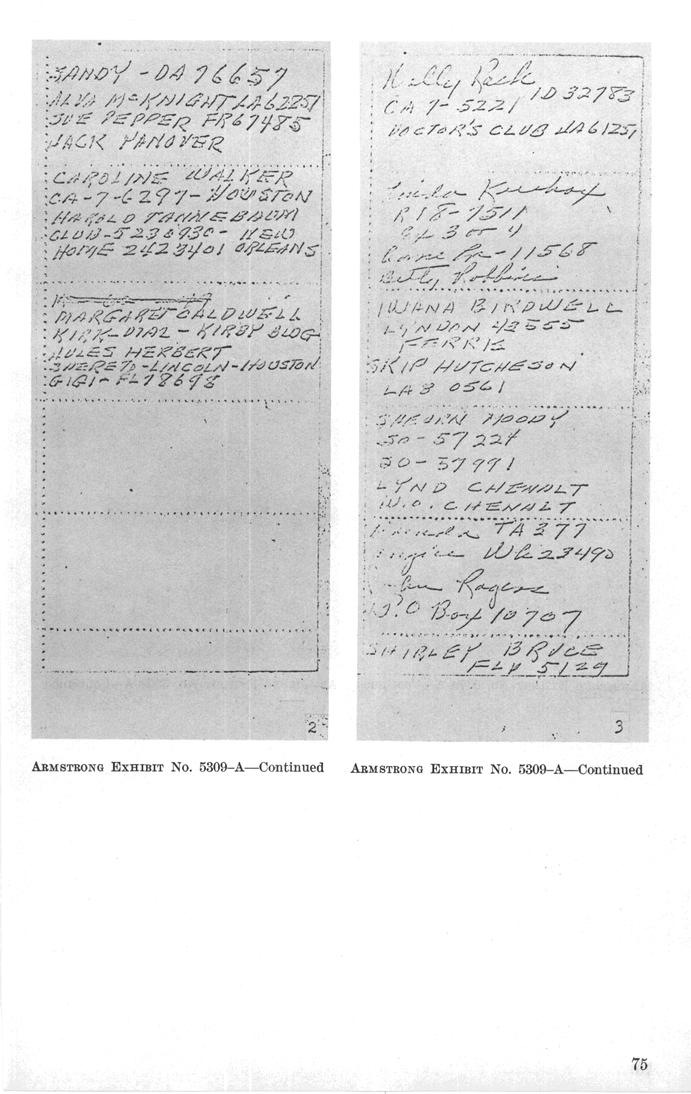 SANDY - DA 76657
ALVA McKNIGHT LA 62251
SUE PEPPER FR67485
JACK HANOVER
CAROLINE WALKER
CA-7-6297-HOUSTON
HAROLD TANNEBAUM
CLUB-5230930-NEW
HOME 2423401 ORLEANS
MARGARET CALDWELL
KIRK-DIAL-KIRBY BLDG
JULES HERBERT
SHERETD-LINCOLN-HOUSTON
GIGI-FL78698
2
ARMSTRONG EXHIBIT No. 5309–A—Continued
Wally
CA 7-5221 ID 32783
DOCTOR'S CLUB JA61251
Linda
R18-7511
3 or 4
11568
Betty Robbins
IWANA BIRDWELL
LYNDON 43555
FERRIS
SKIP HUTCHESON
LA8 0561
SHEURN MOODY
50-57224
20-57991
LYND CHENALT
W.O. CHENALT
TA 377
23490
Rogers
P.O Box 10707
SHIRLEY BRUCE
5129
3
ARMSTRONG EXHIBIT No. 5309–A—Continued
75